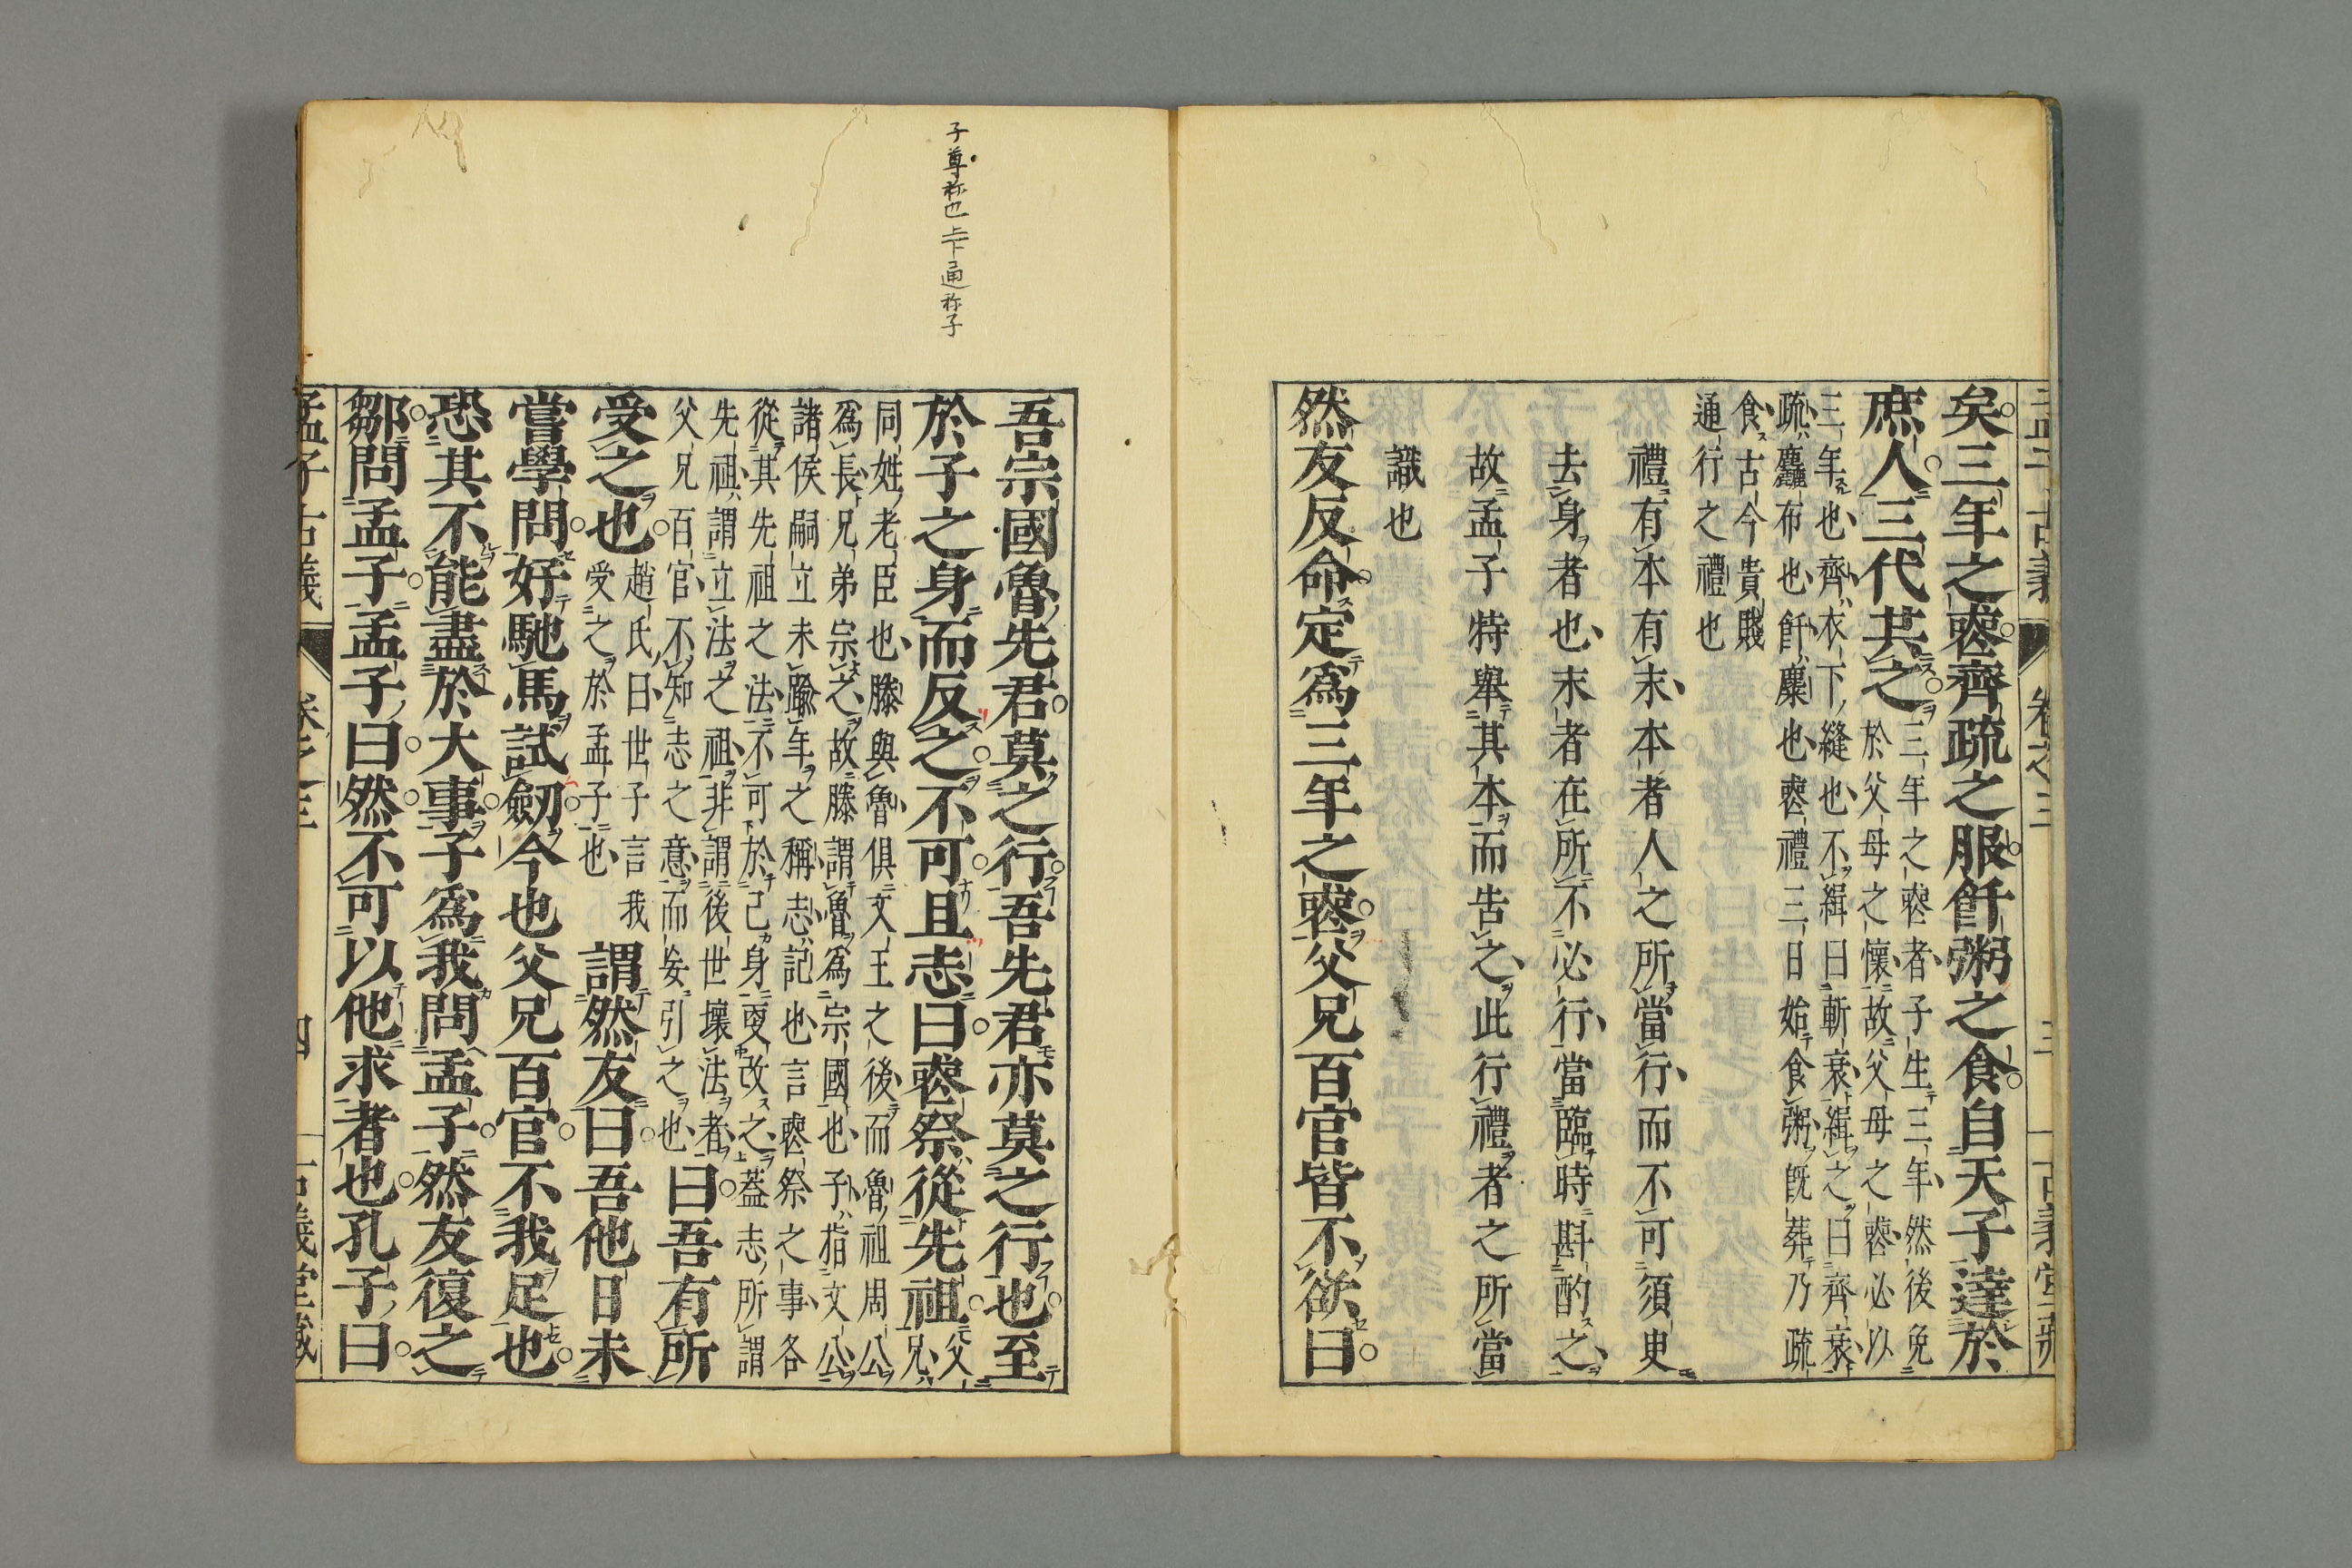 矣三年之喪齊疏之服飦粥之食自天子達於
庶人三代共之
三年之喪者子生三年然後免
於父母之懷故父母之喪必以
三年也齊衣下縫也不緝曰斬衰緝之曰齊衰
疏麤布也飦麋也喪禮三日始食粥既葬乃疏
食古今貴賤
通行之禮也
禮有本有末本者人之所當行而不可須臾
去身者也末者在所不必行當臨時斟酌之
故孟子特舉其本而告之此行禮者之所當
識也
然友反命定爲三年之喪父兄百官皆不欲曰
吾宗國魯先君莫之行吾先君亦莫之行也至
於子之身而反之不可且志曰喪祭從先祖
父
兄
同姓老臣也滕與魯俱文王之後而魯祖周公
爲長兄弟宗之故滕謂魯爲宗國也子指文公
諸侯嗣立未踰年之稱志記也言喪祭之事各
從其先祖之法不可於己身更改之蓋志所謂
先祖謂立法之祖非謂後世壞法者
父兄百官不知志之意而妄引之也
曰吾有所
受之也
趙氏曰世子言我
受之於孟子也
謂然友曰吾他日未
嘗學問好馳馬試劒今也父兄百官不我足也
恐其不能盡於大事子爲我問孟子然友復之
鄒問孟子孟子曰然不可以他求者也孔子曰
孟子古義
卷之三
四
古義堂藏
子尊称也上下通称子